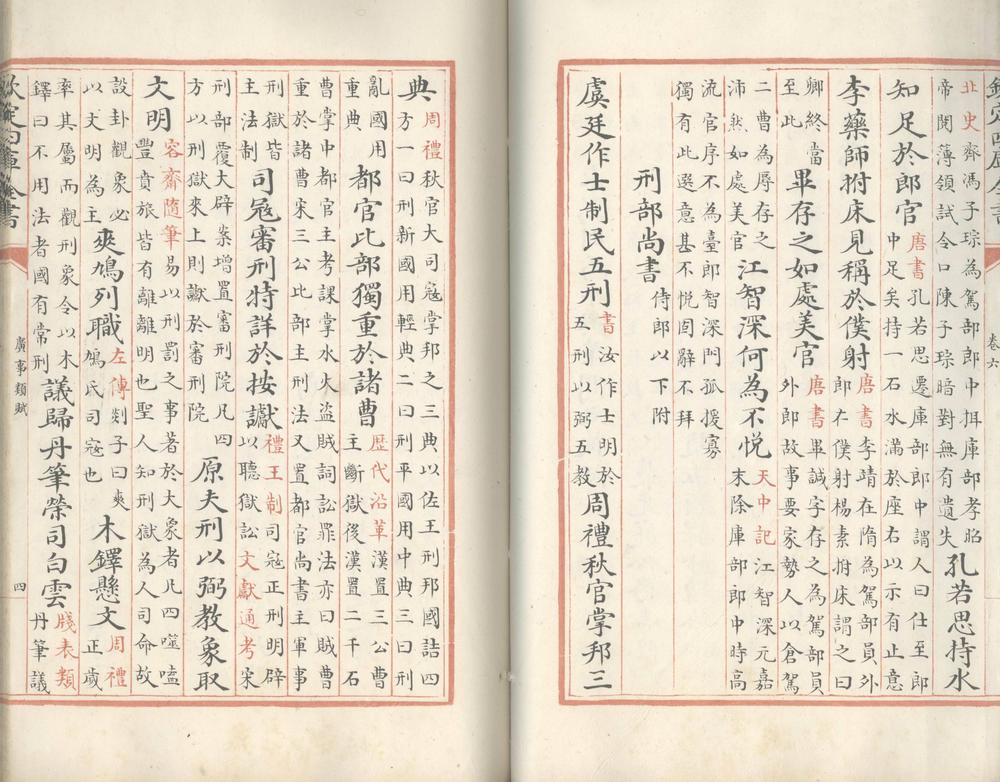 欽定四庫全書
卷六
北史齊馮子琮為駕部郎中揖庫部孝昭
帝閱薄領試令口陳子琮暗對無有遺失
孔若思持水
知足於郎官
唐書孔若思遷庫部郎中謂人曰仕至郎
中足矣持一石水滿於座右以示有止意
李藥師拊床見稱於僕射
唐書李靖在隋為駕部員外
郎左僕射楊素拊床謂之曰
卿終當
至此
畢存之如處美官
唐書畢諴字存之為駕部員
外郎故事要家勢人以倉駕
二曹為辱存之
沛然如處美官
江智深何為不悅
天中記江智深元嘉
末除庫部郎中時高
流官序不為臺郎智深門孤援寡
獨有此選意甚不悅固辭不拜
刑部尚書
侍郎以下附
虞廷作士制民五刑
書汝作士明於
五刑以弼五教
周禮秋官掌邦三
典
周禮秋官大司寇掌邦之三典以佐王刑邦國詰四
方一曰刑新國用輕典二曰刑平國用中典三曰刑
亂國用
重典
都官比部獨重於諸曹
歷代沿革漢置三公曹
主斷獄後漢置二千石
曹掌中都官主考課掌水火盜賊詞訟罪法亦曰賊曹
重於諸曹宋三公比部主刑法又置都官尚書主軍事
刑獄皆
主法制
司寇審刑特詳於按讞
禮王制司寇正刑明辟
以聽獄訟文獻通考宋
刑部覆大辟案增置審刑院凡四
方以刑獄來上則讞於審刑院
原夫刑以弼教象取
文明
容齋隨筆易以刑罰之事著於大象者凡四噬嗑
豐賁旅皆有離離明也聖人知刑獄為人司命故
設卦觀象必
以文明為主
爽鳩列職
左傳剡子曰爽
鳩氏司寇也
木鐸懸文
周禮
正歲
率其屬而觀刑象令以木
鐸曰不用法者國有常刑
議歸丹筆榮司白雲
牋表類
丹筆議
欽定四庫全書
廣事類賦
四